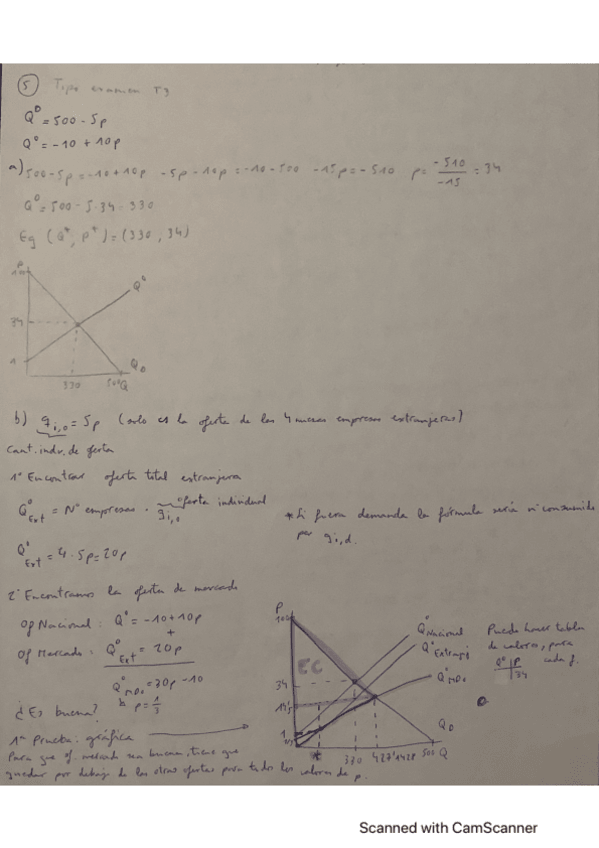 5 Tipo examen T3
Q^D = 500 - 5p
Q^o = -10 + 10p
a) 500 - 5p = -10 + 10p  -5p - 10p = -10 - 500  -15p = -510  p = -510 / -15 = 34
Q^D = 500 - 5·34 = 330
Eq (Q*, p*) = (330, 34)
P
100
Q^o
34
1
Q_D
330 500 Q
b) q_i,o = 5p (solo es la oferta de las 4 nuevas empresas extranjeras)
Cant. indv. de oferta
1º Encontrar oferta total extranjera
Q^o_Ext = Nº empresas · q_i,o oferta individual
* Si fuera demanda la fórmula sería nº consumido
por q_i,d.
Q^o_Ext = 4 · 5p = 20p
2º Encontramos la oferta de mercado
Of Nacional: Q^o = -10 + 10p
+
Of Mercado: Q^o_Ext = 20p
Q^o_MDO = 30p - 10
p = 1/3
¿Es buena?
1ª Prueba: gráfica
Para que of. mercado sea buena, tiene que
quedar por debajo de las otras ofertas para todos los valores de p.
P
100
Q^o Nacional
Q^o Extranj
Q^o MDO
EC
34
1
Q_D
330 500 Q
Puedo hacer tabla
de valores, para
Q^o | P cada f.
34
Scanned with CamScanner